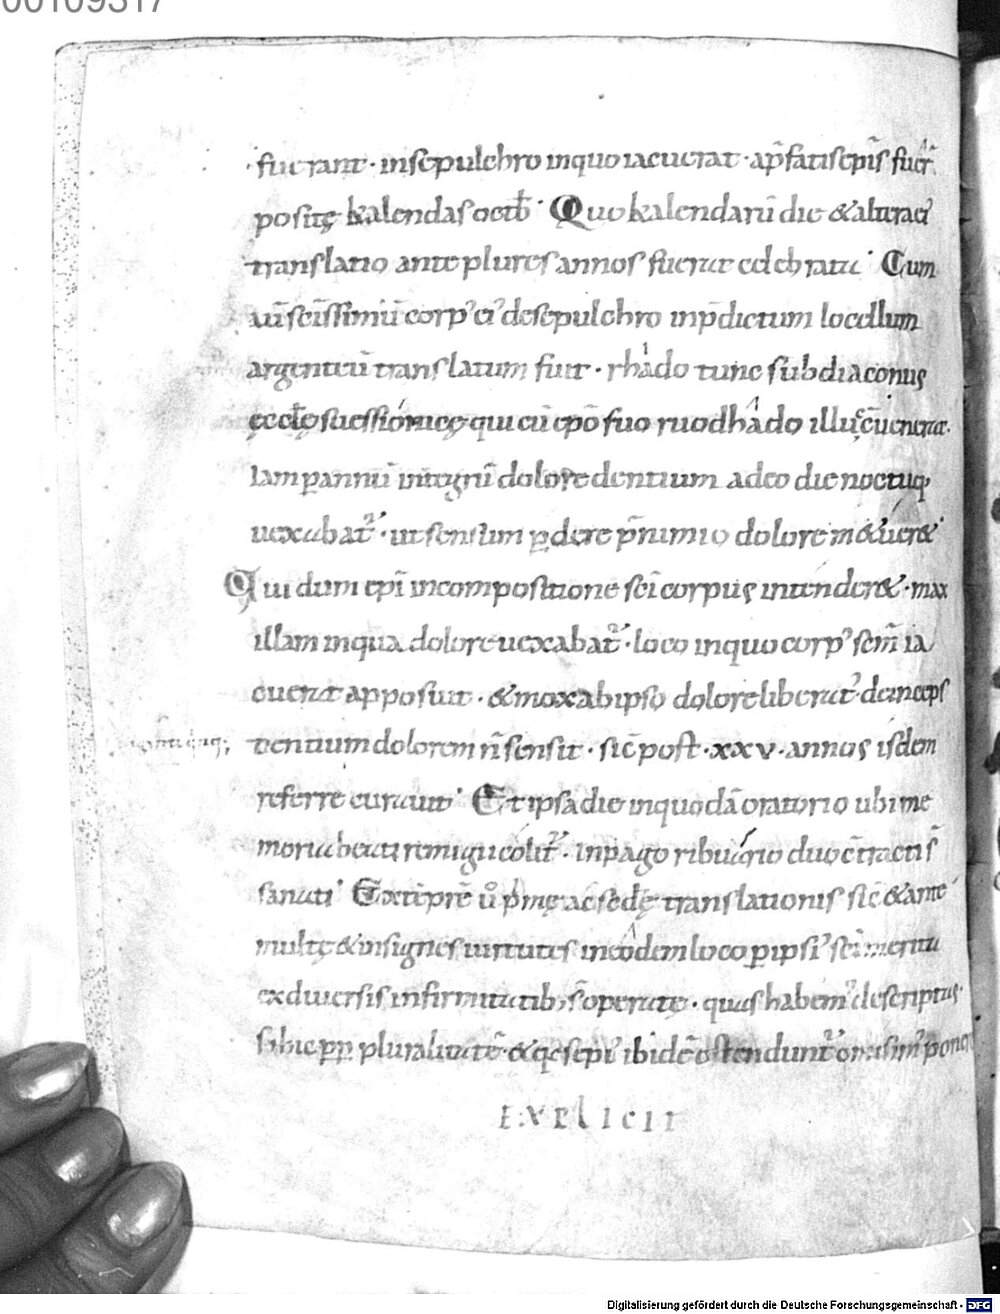 00109317
fuerant · in sepulchro in quo iacuerat · a p̄fatis ep̄is fuer̄
positę kalendas octb̄ · Quo kalendarū die & altera ei'
translatio ante plures annos fuerat celebrata · Cum
uō sc̄issimū corp' ei' de sepulchro in p̄dictum locellum
argenteū translatum fuit · rhado tunc subdiaconus
ęccłę suessionicę qui cū ep̄o suo ruodhado illuc cūenerat.
Iam p annū integrū dolore dentium adeo die noctuq;
uexabat᷑ · ut sensum pdere p̄ nimio dolore metueret
Qui dum ep̄i in compositione sc̄i corpus intenderet · max
illam in qua dolore uexabat᷑ · loco in quo corp' sc̄m ia
cuerat apposuit · & mox ab ipso dolore liberat' deinceps
dentium dolorem n̄ sensit · sic post · xxv · annos isdem
referre curauit · Et ipsa die in quodā oratorio ubi me
moria beati remigii colit᷑ · in pago ribuario duo c̄tracti s̄
sanati · Et
multę & insignes uirtutes in eodem loco p ipsi' sc̄i merita
ex diuersis infirmitatib; s̄ operatę · quas habem' descriptas
s; hic pp pluralitatē & qę sepi' ibidē ostendunt᷑ omisim' poner
EXPLICIT
Digitalisierung gefördert durch die Deutsche Forschungsgemeinschaft - DFG